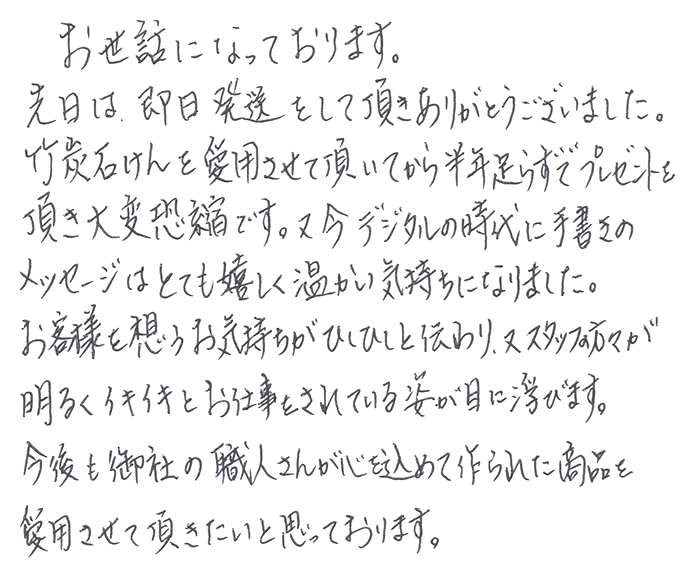 お世話になっております。
先日は、即日発送をして頂きありがとうございました。
竹炭石けんを愛用させて頂いてから半年足らずでプレゼントを
頂き大変恐縮です。又今デジタルの時代に手書きの
メッセージはとても嬉しく温かい気持ちになりました。
お客様を想うお気持ちがひしひしと伝わり、又スタッフの方々が
明るくイキイキとお仕事をされている姿が目に浮びます。
今後も御社の職人さんが心を込めて作られた商品を
愛用させて頂きたいと思っております。